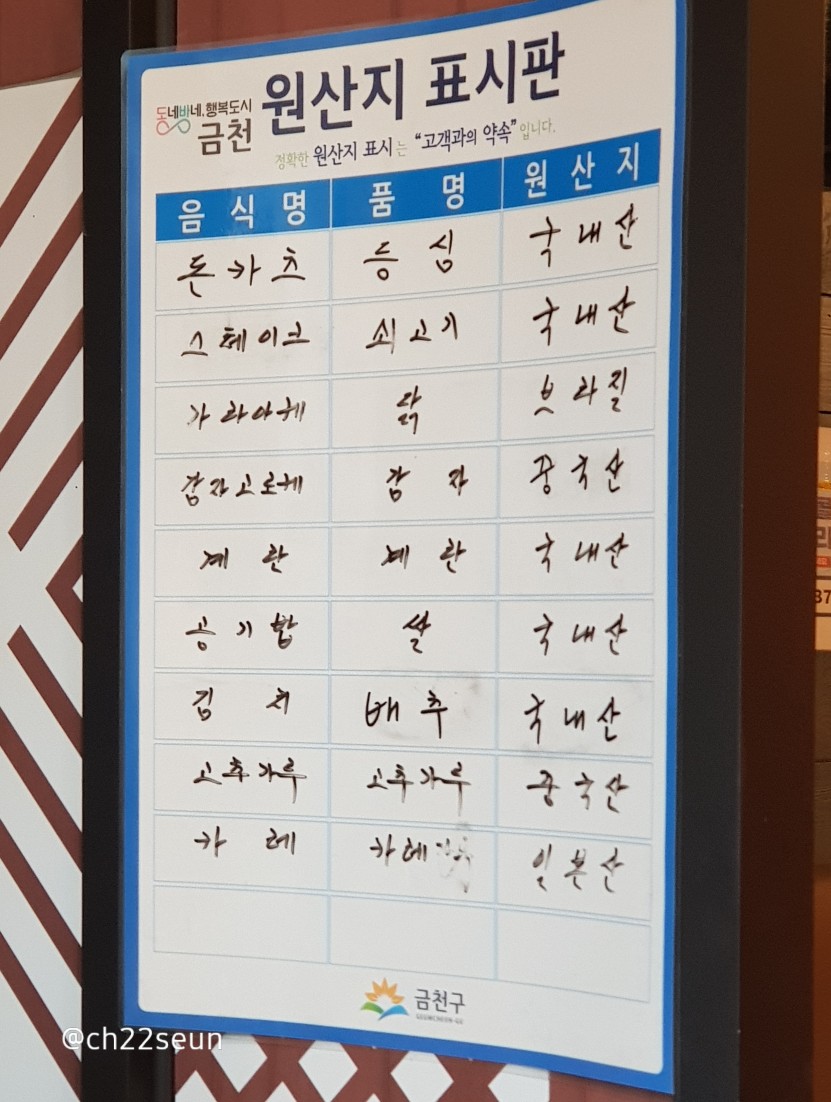 동네방네.행복도시
금천
원산지 표시판
정확한 원산지 표시는 "고객과의 약속"입니다.
음식명 품명 원산지
돈카츠 등심 국내산
스테이크 쇠고기 국내산
가라아케 닭 브라질
감자고로케 감자 중국산
계란 계란 국내산
공기밥 쌀 국내산
김치 배추 국내산
고추가루 고추가루 중국산
카레 카레 일본산
금천구
GEUMCHEON-GU
@ch22seun